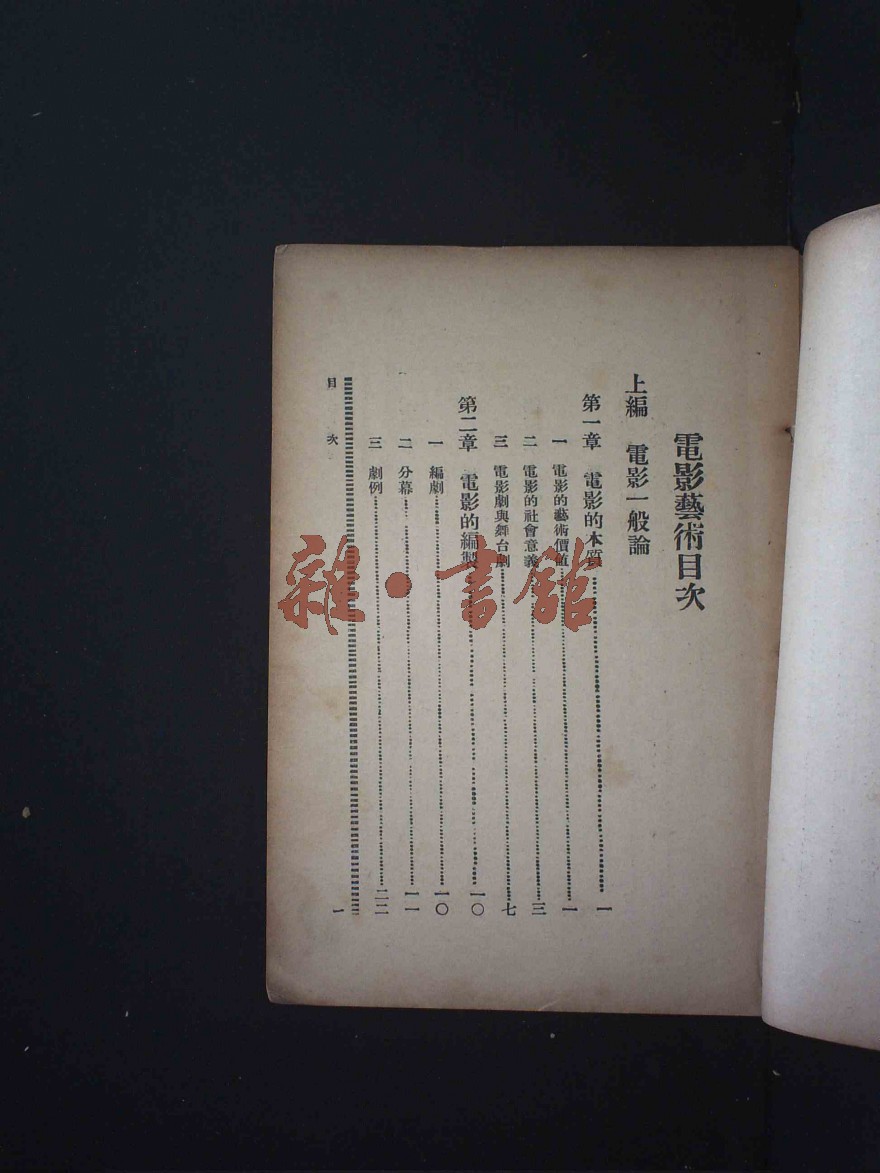 電影藝術目次
上編　電影一般論
第一章　電影的本質……一
一　電影的藝術價值……一
二　電影的社會意義……三
三　電影劇與舞台劇……七
第二章　電影的編製……一〇
一　編劇……一〇
二　分幕……一一
三　劇例……二二
目次
一
雜·書館